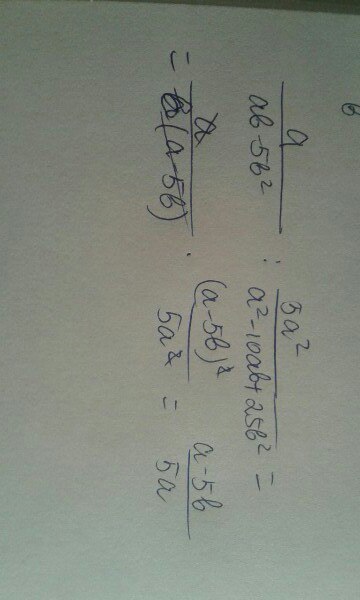 в
a / (ab - 5b²) : 5a² / (a² - 10ab + 25b²) =
= a / (b(a - 5b)) · (a - 5b)² / 5a² = (a - 5b) / 5a